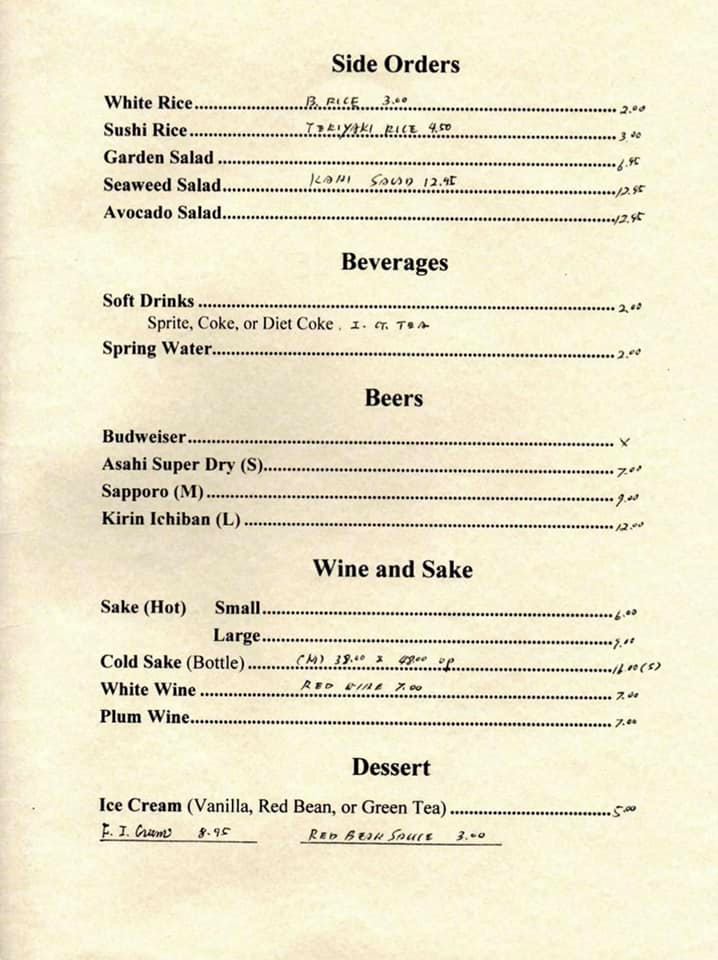 Side Orders
White Rice B. RICE 3.00 2.00
Sushi Rice TERIYAKI RICE 4.50 3.00
Garden Salad 6.95
Seaweed Salad KANI SALAD 12.95 12.95
Avocado Salad 12.95
Beverages
Soft Drinks 2.00
Sprite, Coke, or Diet Coke . I. G. TEA
Spring Water 2.00
Beers
Budweiser X
Asahi Super Dry (S) 7.00
Sapporo (M) 9.00
Kirin Ichiban (L) 12.00
Wine and Sake
Sake (Hot) Small 6.00
Large 9.00
Cold Sake (Bottle) (M) 38.00 & 48.00 up 16.00 (S)
White Wine RED WINE 7.00 7.00
Plum Wine 7.00
Dessert
Ice Cream (Vanilla, Red Bean, or Green Tea) 5.00
F. I. Cream 8.95 RED BEAN SAUCE 3.00